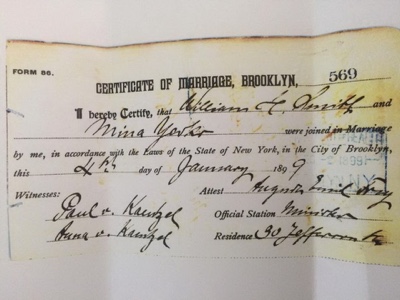 FORM 86.
CERTIFICATE OF MARRIAGE, BROOKLYN, 569
I hereby Certify, that William Smith and
Mina were joined in Marriage
by me, in accordance with the Laws of the State of New York, in the City of Brooklyn,
this 4th day of January 1899
Witnesses: Attest August Emil
Paul v. Kantzel Official Station Minister
Anna v. Kantzel Residence 30 Jefferson